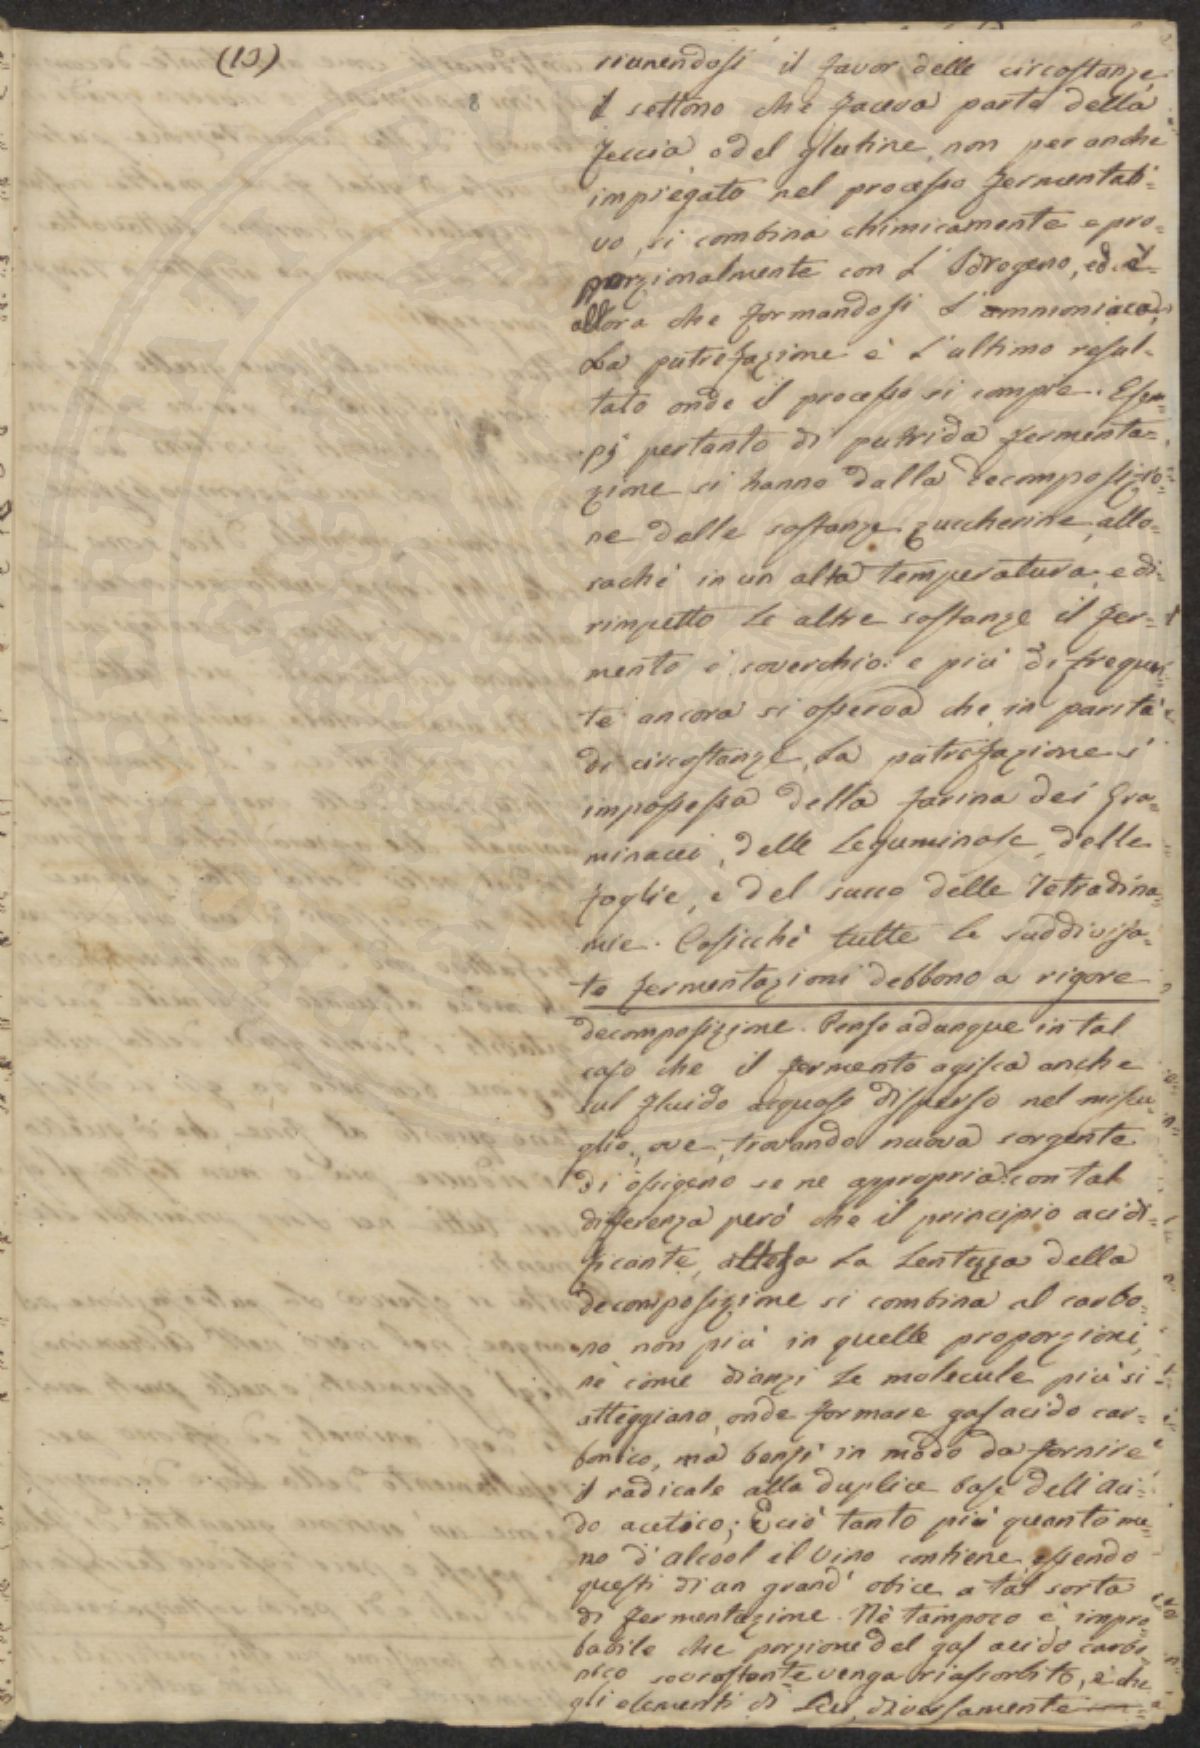 (15)
8
riunendosi il favor delle circostanze,
il settono che faceva parte della
feccia o del glutine, non per anche
impiegato nel processo fermentati=
vo, si combina chimicamente e pro=
porzionalmente con l'Idrogeno, ed è
allora che formandosi l'ammoniaca,
La putrefazione è l'ultimo resul=
tato onde il processo si compie. Esem=
pj pertanto di putrida fermenta=
zione si hanno dalla decomposizio=
ne dalle sostanze zuccherine, allo=
rachè in un alta temperatura, e di=
rimpetto le altre sostanze il fer=
mento è soverchio: e più di frequen=
te ancora si osserva che in parità
di circostanze, la putrefazione s'
impossessa della farina dei Gra=
minacei, delle Leguminose, delle
foglie, e del succo delle Tetradina=
mie. Cosicchè tutte le suddivisa=
te fermentazioni debbono a rigore
decomposizione. Penso adunque in tal
caso che il fermento agisca anche
sul fluido acquoso disperso nel miscu=
glio, ove, trovando nuova sorgente
di ossigeno se ne appropria: con tal
differenza però che il principio acidi=
ficante, attesa la lentezza della
decomposizione si combina al carbo=
no non più in quelle proporzioni,
nè come dianzi le molecule più si
atteggiano, onde formare gas acido car=
bonico, ma bensì in modo da fornire
il radicale alla duplice base dell'Aci=
do acetico; E ciò tanto più quanto me=
no d'alcool il vino contiene, essendo
questi di un grand' obice a tal sorta
di fermentazione. Nè tampoco è impro=
babile che porzione del gas acido carbo=
nico sovrastante venga riassorbito, e che
gli elementi di Lui, diversamente